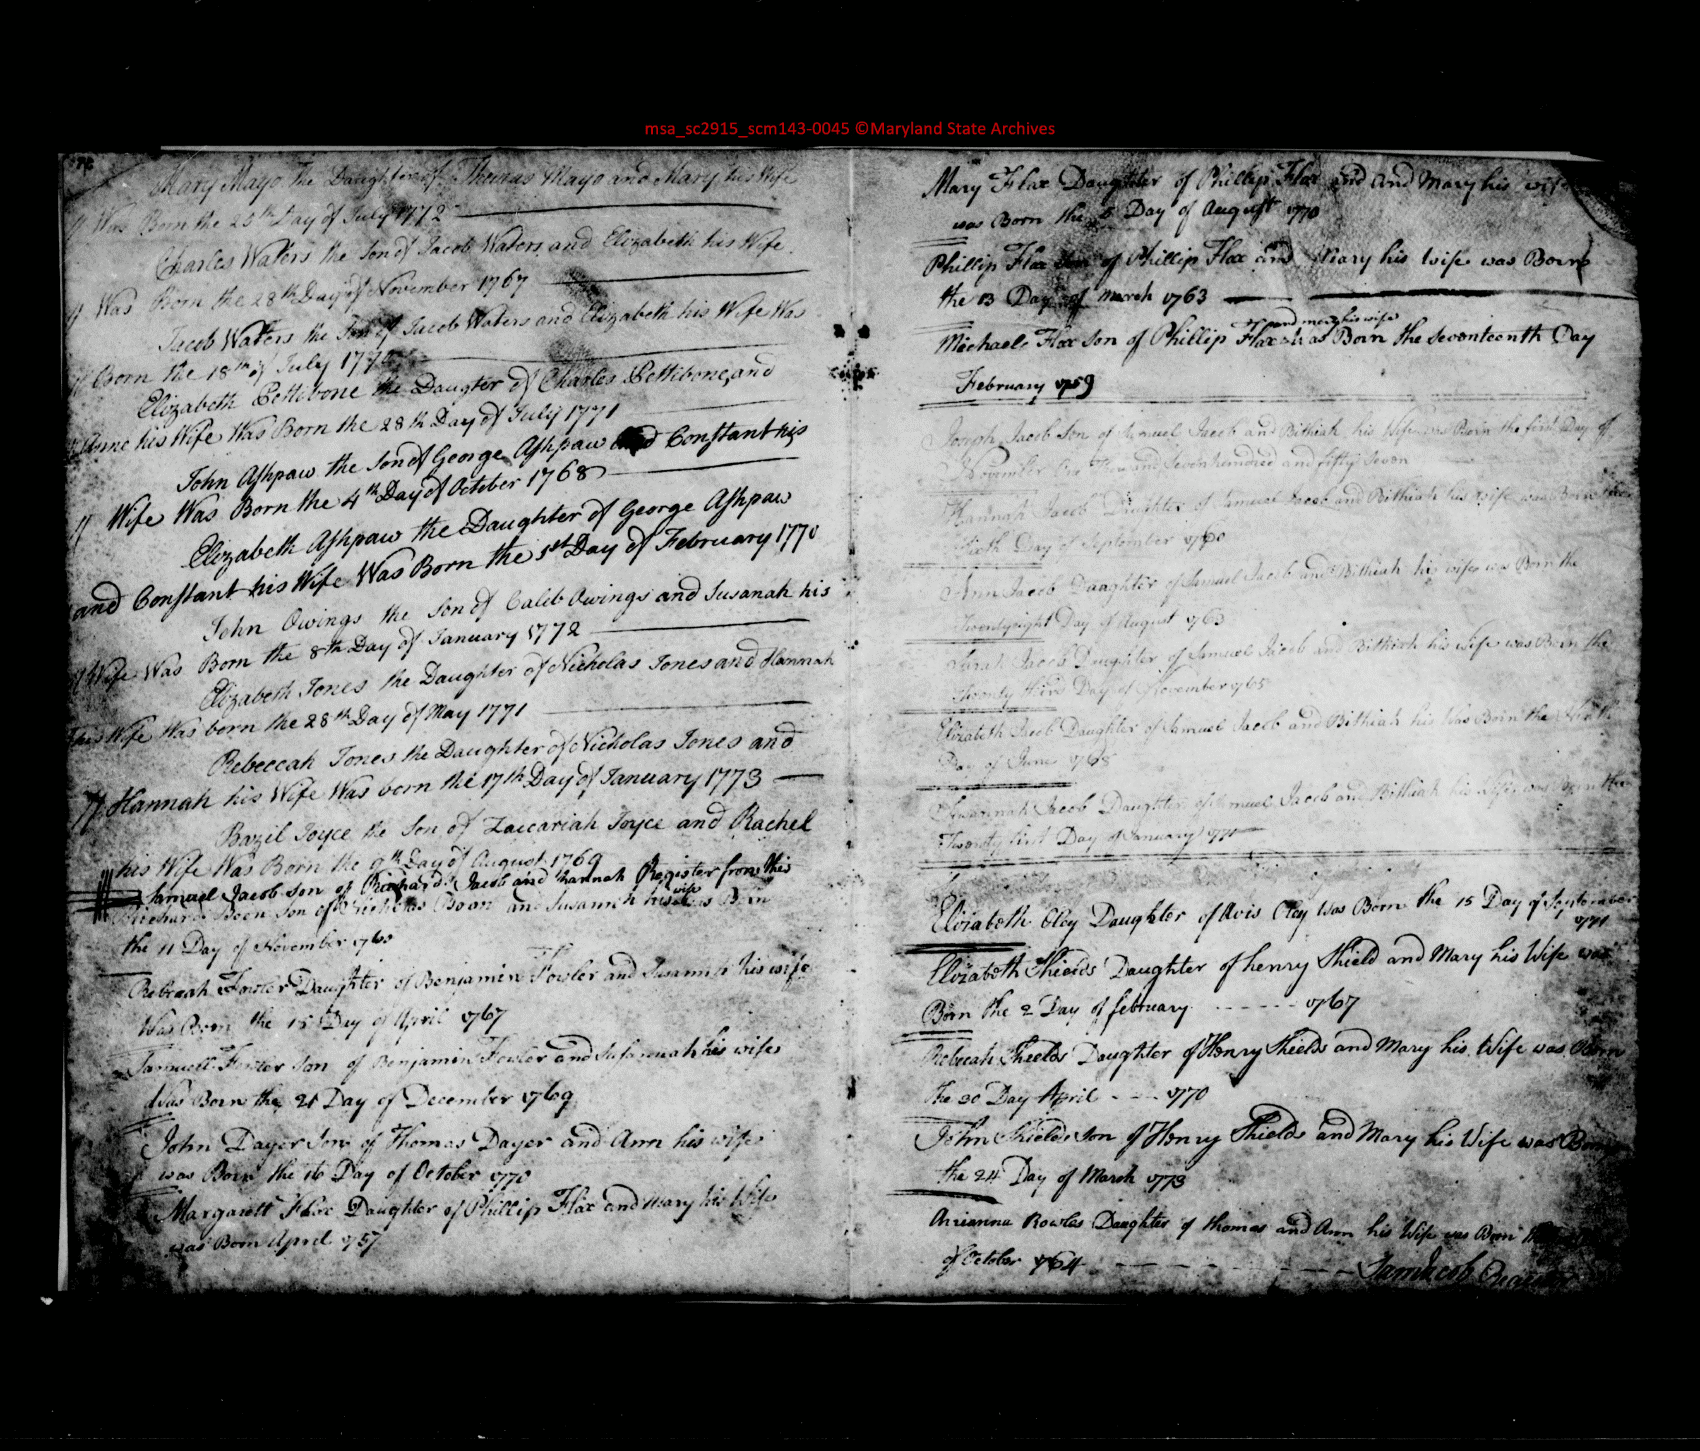 msa_sc2915_scm143-0045 ©Maryland State Archives
Mary Mayo the Daughter of Thomas Mayo and Mary his Wife
Was Born the 25th Day of July 1772
Charles Waters the Son of Jacob Waters and Elizabeth his Wife
Was Born the 28th Day of November 1767
Jacob Waters the Son of Jacob Waters and Elizabeth his Wife Was
Born the 18th of July 177
Elizabeth Pettibone the Daugter of Charles Pettibone and
Anne his Wife Was Born the 28th Day of July 1771
John Ashpaw the Son of George Ashpaw and Constant his
Wife Was Born the 4th Day of October 1768
Elizabeth Ashpaw the Daughter of George Ashpaw
and Constant his Wife Was Born the 5st Day of February 1770
John Owings the Son of Caleb Owings and Susanah his
Wife Was Born the 8th Day of January 1772
Elizabeth Jones the Daughter of Nicholas Jones and Hannah
his Wife Was born the 28th Day of May 1771
Rebeccah Jones the Daughter of Nicholas Jones and
Hannah his Wife Was born the 17th Day of January 1773
Bazil Joyce the Son of Zaccariah Joyce and Rachel
his Wife Was Born the 9th Day of August 1769
Samuel Jacob Son of Richard Jacob and Hannah Register from this
Richard Boon Son of Nicholas Boan and Susannah his wife was Born
the 11 Day of November 1760
Rebecah Fowler Daughter of Benjamin Fowler and Susannah his wife
Was Born the 15 Day of April 1767
Samuell Fowler Son of Benjamin Fowler and Susannah his wife
Was Born the 21 Day of December 1769
John Dayer Son of Thomas Dayer and Ann his wife
was Born the 16 Day of October 1770
Margarett Flax Daughter of Phillip Flax and Mary his Wife
was Born April 1757
Mary Flax Daughter of Phillip Flax and and Mary his wife
was Born the 5 Day of August 1770
Phillip Flax Son of Phillip Flax and Mary his Wife was Born
the 13 Day of March 1763
and mary his wife
Michael Flax Son of Phillip Flax was Born the Seventeenth Day
February 1759
Joseph Jacob Son of Samuel Jacob and Bithiah his Wife was Born the first Day of
November One Thousand Seven hundred and fifty Seven
Hannah Jacob Daughter of Samuel Jacob and Bithiah his wife was Born the
Sixth Day of September 1760
Ann Jacob Daughter of Samuel Jacob and Bithiah his wife was Born the
Twentyeight Day of August 1763
Sarah Jacob Daughter of Samuel Jacob and Bithiah his Wife was Born the
Twenty third Day of November 1765
Elizabeth Jacob Daughter of Samuel Jacob and Bithiah his Was Born the
Day of June 1768
Susannah Jacob Daughter of Samuel Jacob and Bithiah his Wife was Born the
Twenty first Day of January 1771
Elizabeth Cloy Daughter of Avis Cloy Was Born the 15 Day of September
1771
Elizabeth Shields Daughter of henry Shield and Mary his Wife was
Born the 2 Day of february 1767
Rebecah Shields Daughter of Henry Shields and Mary his Wife was Born
The 20 Day April 1770
John Shields Son of Henry Shields and Mary his Wife was Born
the 24 Day of March 1773
Arrianna Rowles Daughter of thomas and Ann his Wife was Born
of October 1764
Sam Jacob